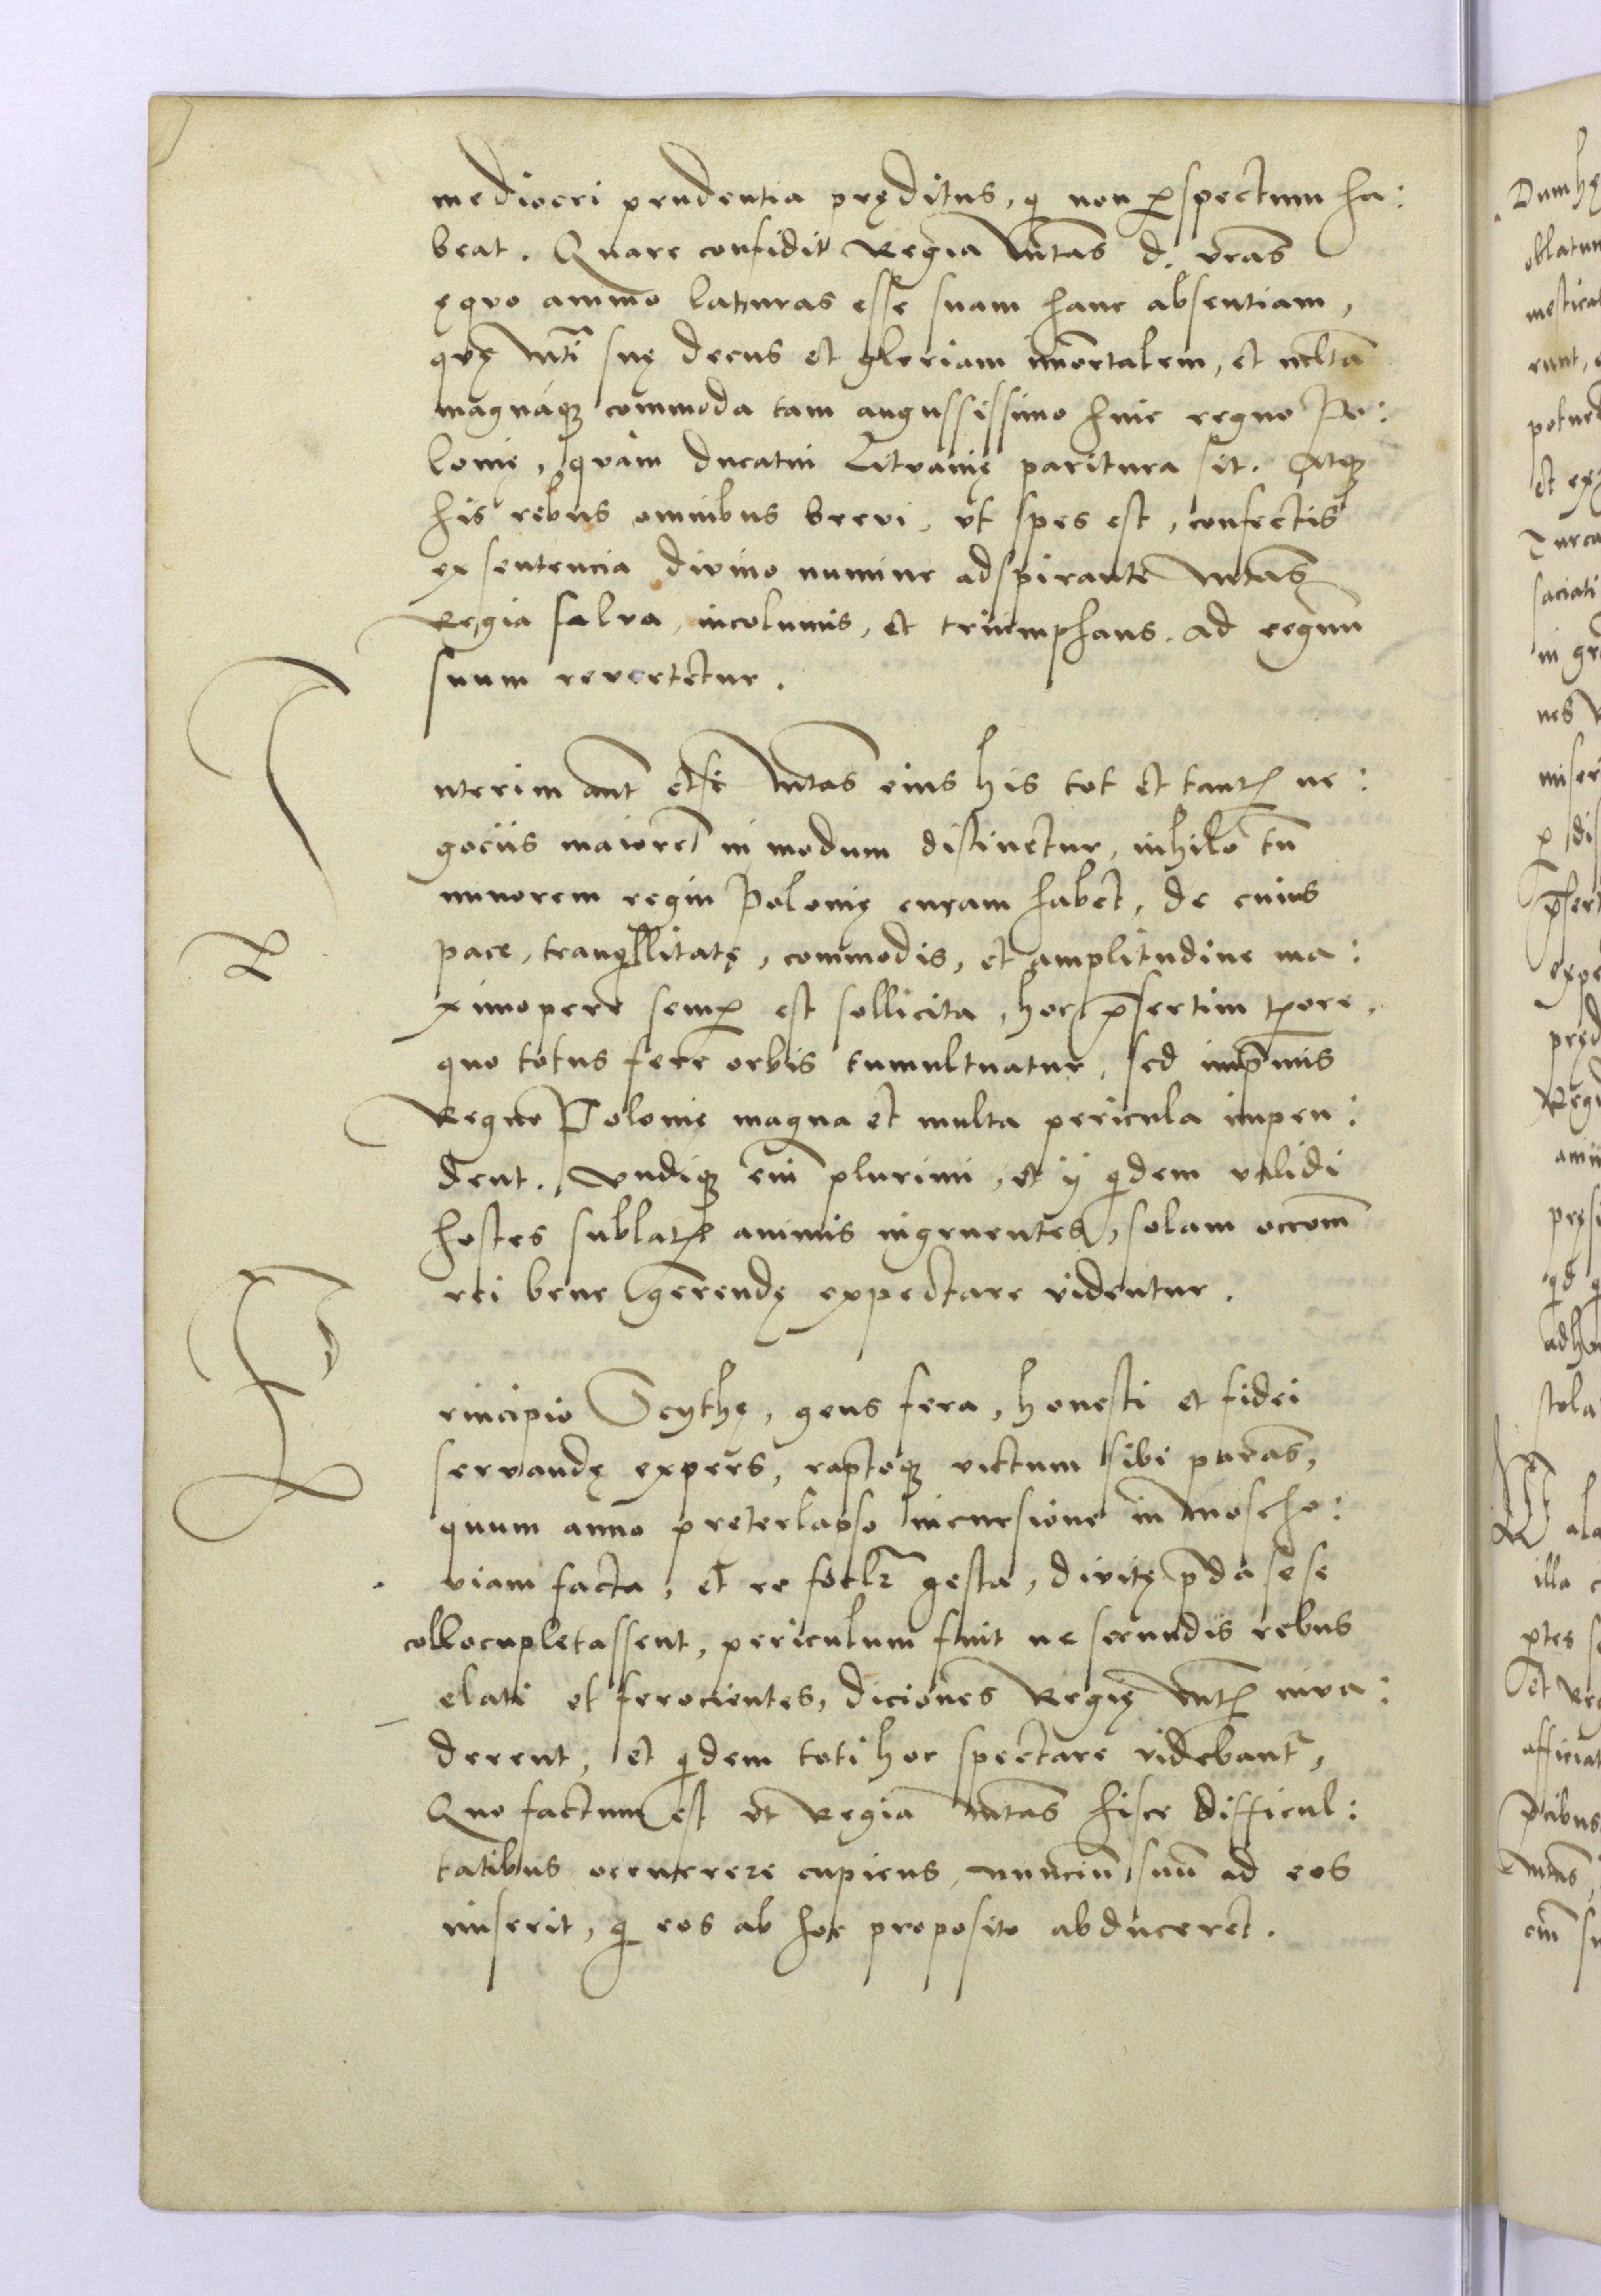 mediocri prudentia pręditus, q̨ non ꝑspectum ha:
beat. Quare confidit Regia Mtas d. vras
ęquo animo laturas esse suam hanc absentiam,
quę Mti suę decus et gloriam im̄ortalem, et mlta
magnáqꝫ commoda tam augustissimo huic regno Po:
lonię, quàm ducatui Lituanię paritura sit. Atqꝫ
his rebus omnibus brevi, ut spes est, confectis
ex sentencia divino numine adspirante Mtas
Regia salva, incolumis, et triumphans ad regnū
suum revertetur.
Interim aūt etsi Mtas eius his tot et tantꝭ ne:
gociis maiorē in modum distinetur, nihilo tn̄
minorem regni Polonię curam habet, de cuius
pace, tranqllitatę, commodis, et amplitudine ma:
ximopere semꝑ est sollicita, hoc p̄sertim tꝑore,
quo totus fere orbis tumultuatur, sed imp̄mis
Regno Polonię magna et multa pericula impen:
dent. Undiqꝫ em̄ plurimi, et ij qdem validi
hostes sublatꝭ animis ingruentes, solam occom̄
rei bene gerendę expectare videntur.
Principio Scythę, gens fera, honesti et fidei
servandę expers, raptoqꝫ victum sibi parās,
quum anno preterlapso incursione in Moscho:
viam facta, et re foelr gesta, divitę p̄da sese
collocupletassent, periculum fuit ne secundis rebus
elati et ferocientes, diciones Regię Mtꝭ inva:
derent, et qdem toti hoc spectare videbantr,
Quo factum est ut Regia Mtas hisce difficul:
tatibus occurrere cupiens, nunciū suū ad eos
miserit, q̨ eos ab hoc proposito abduceret.